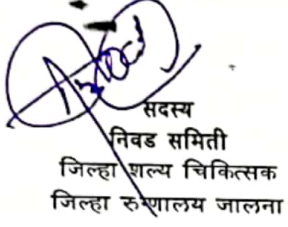 सदस्य
निवड समिती
जिल्हा शल्य चिकित्सक
जिल्हा रुग्णालय जालना